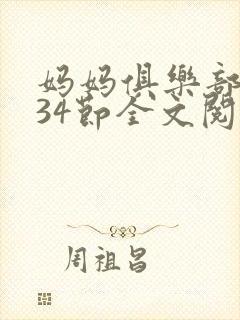 妈妈俱樂部
34節全文閱
周祖昌